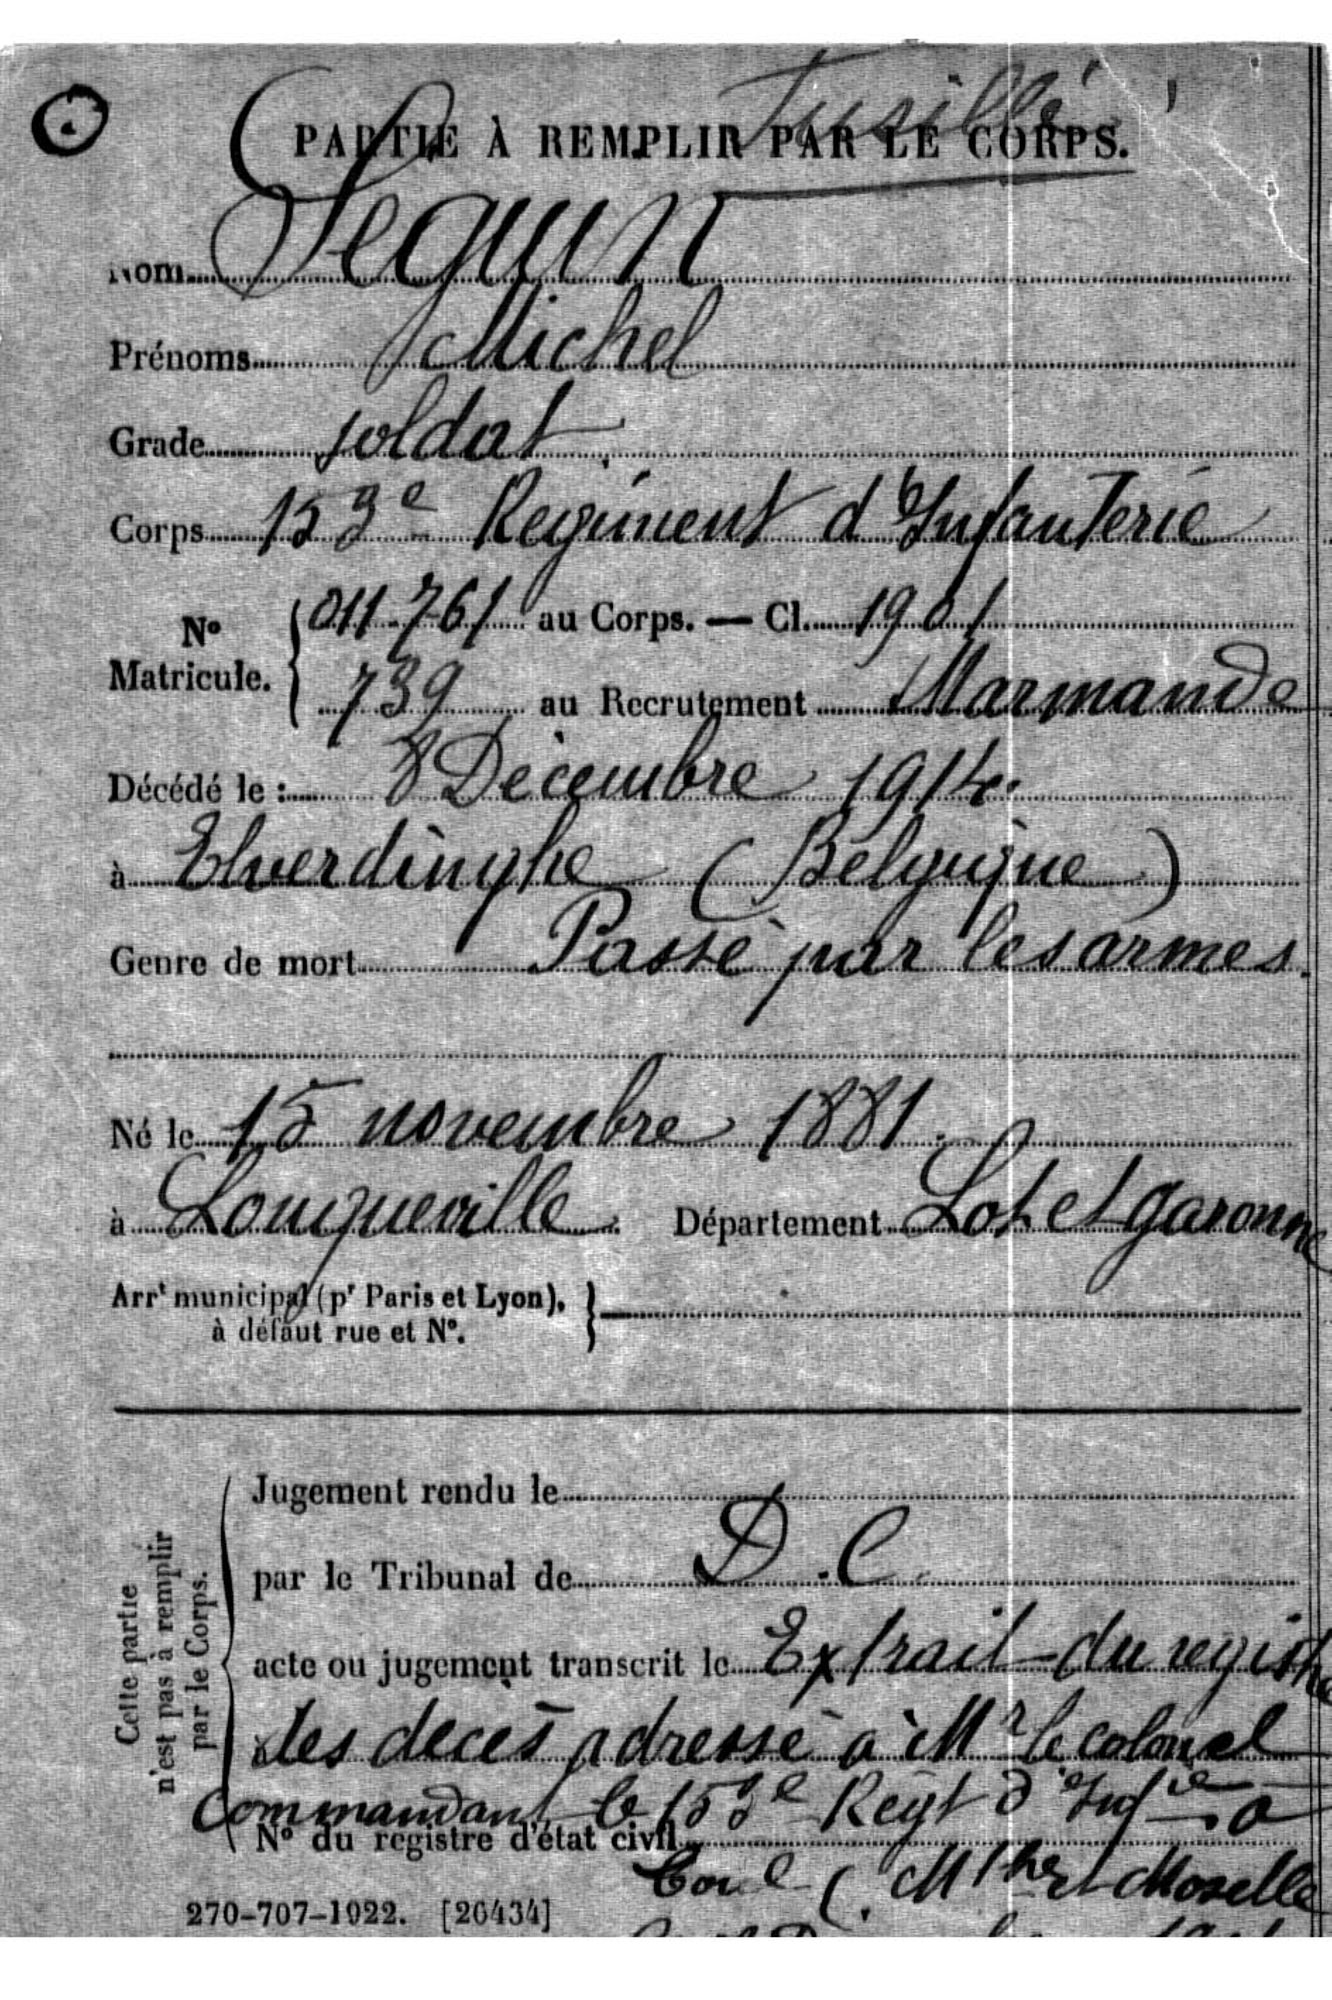 Fusillé
PARTIE À REMPLIR PAR LE CORPS.
Nom Seguin
Prénoms Michel
Grade soldat
Corps 153e Regiment d'Infanterie
No Matricule. { 011.761 au Corps. — Cl. 1901
739 au Recrutement Marmande
Décédé le : 8 Décembre 1914.
à Elverdinghe (Belgique)
Genre de mort Passé par les armes.
Né le 15 novembre 1881.
à Longueville. Département Lot et garonne
Arrt municipal (pr Paris et Lyon), }
à défaut rue et No.
Cette partie
n'est pas à remplir
par le Corps.
Jugement rendu le
par le Tribunal de D.C.
acte ou jugement transcrit le Extrait du registre
des decès adressé à Mr le colonel
Commandant le 153e Regt d'Infie à
No du registre d'état civil
Toul (Mthe et Moselle
270-707-1922. [26434]